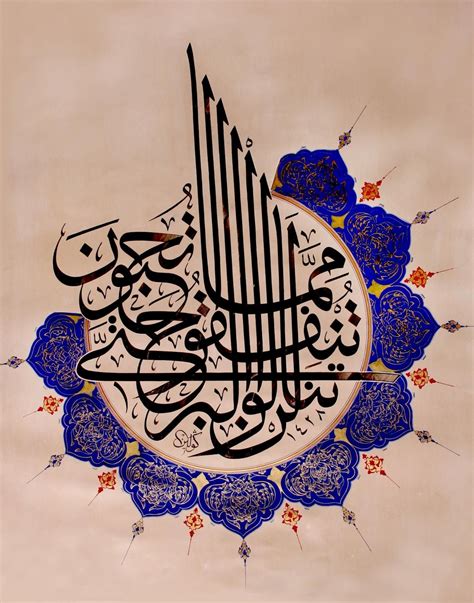 لن تنالوا البر
حتى تنفقوا
مما تحبون
١٤١٨